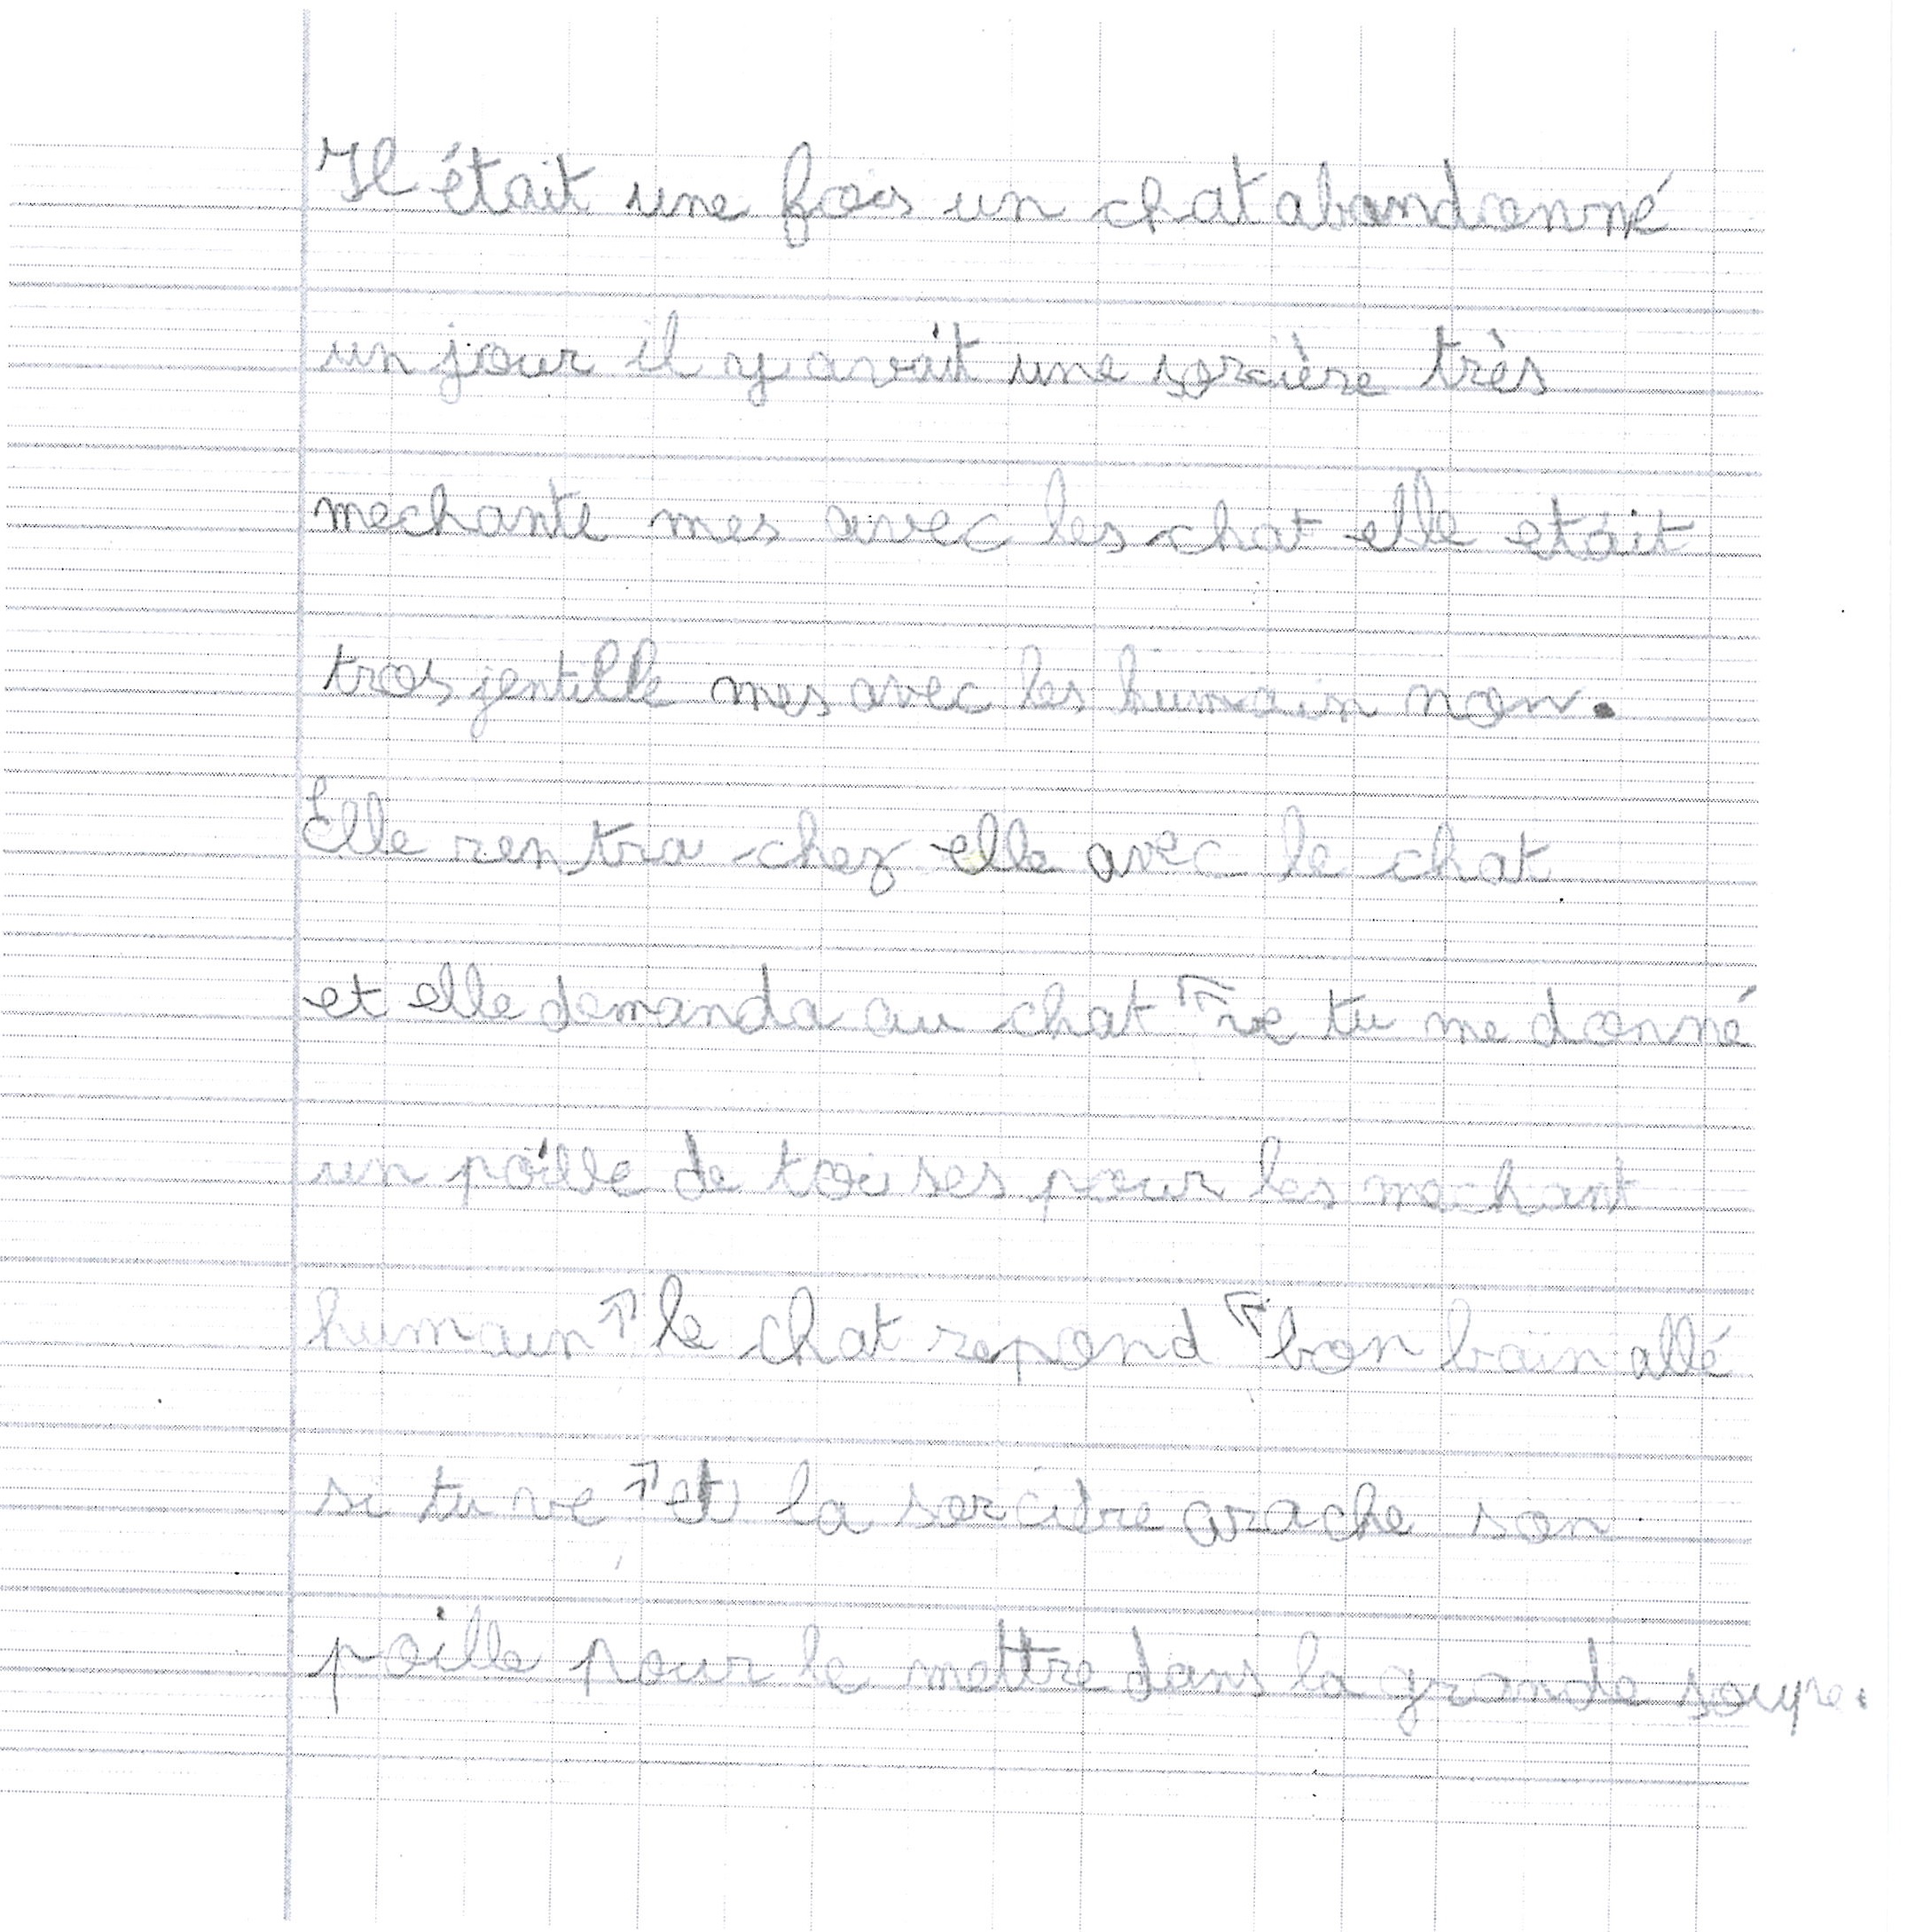 Il était une fois un chat abandonné
un jour il y avait une sorcière très
mechante mes avec les chat elle etait
tros jentille mes avec les humain non.
Elle rentra chez elle avec le chat
et elle demanda au chat " ve tu me donné
un poille de toi ses pour les mechant
humain " le chat repond " bon bain allé
si tu ve " et la sorcière arache son
poille pour le mettre dans la grande soupe.